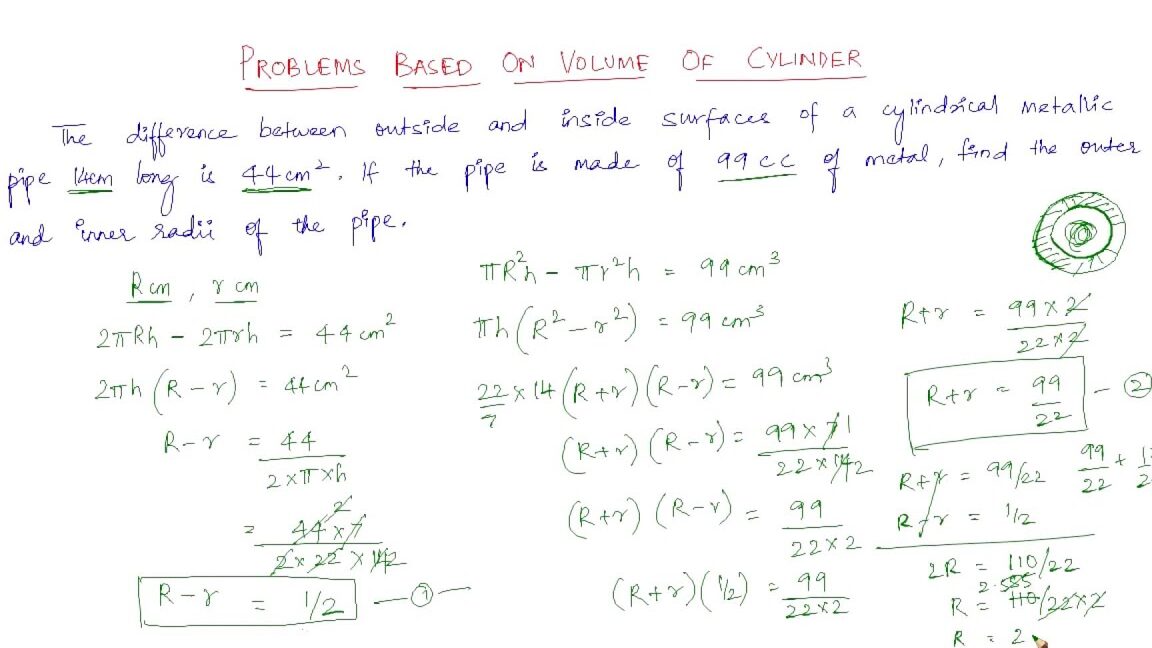 PROBLEMS BASED ON VOLUME OF CYLINDER
The difference between outside and inside surfaces of a cylindrical metallic
pipe 14cm long is 44 cm². If the pipe is made of 99 cc of metal, find the outer
and inner radii of the pipe.
R cm , r cm
2πRh - 2πrh = 44 cm²
2πh (R - r) = 44 cm²
R - r = 44 / 2×π×h
= 44 × 7 / 2 × 22 × 14 2
2
R - r = 1/2 — ① —
πR²h - πr²h = 99 cm³
πh (R² - r²) = 99 cm³
22/7 × 14 (R + r) (R - r) = 99 cm³
(R + r) (R - r) = 99 × 7 1 / 22 × 14 2
(R + r) (R - r) = 99 / 22 × 2
(R + r) (1/2) = 99 / 22 × 2
R + r = 99 × 2 / 22 × 2
R + r = 99 / 22 — ②
R + r = 99/22
99/22 +
R - r = 1/2
2R = 110/22
R = 110/22×2
R = 2